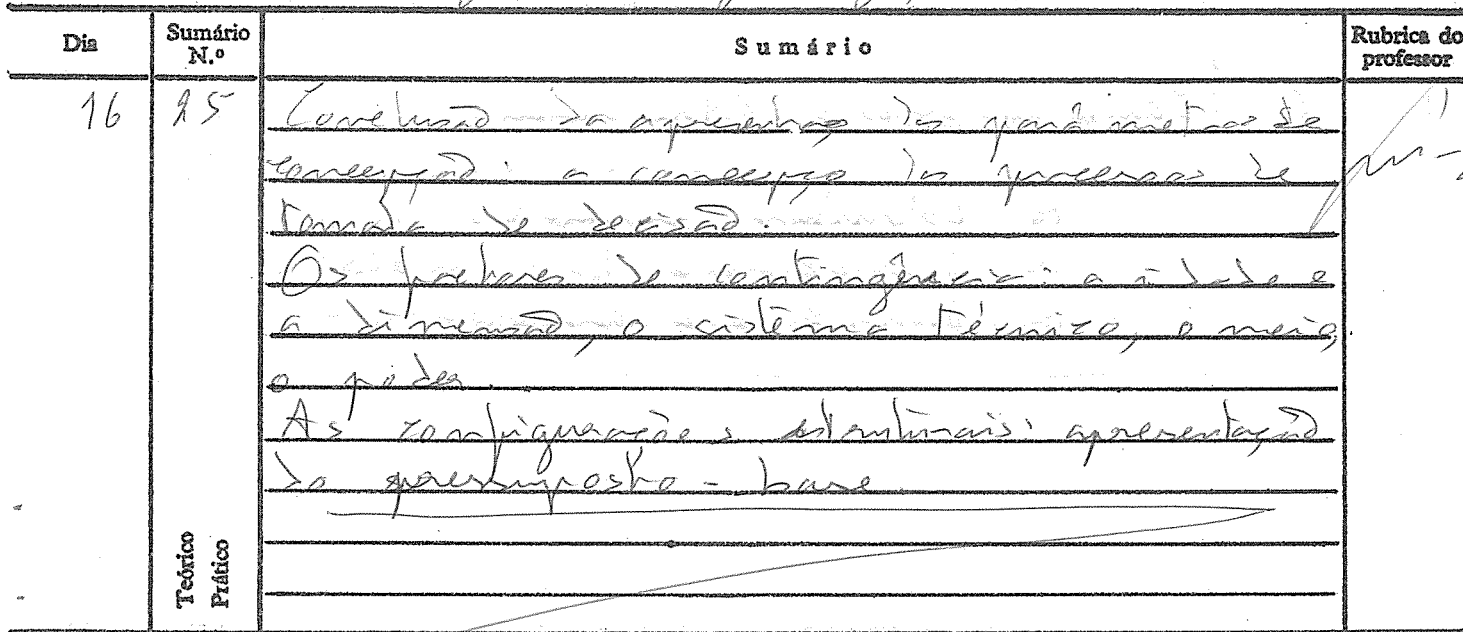 Dia Sumário N.º Sumário Rubrica do professor
16 25 Conclusão da apresentação dos parâmetros de
concepção: a concepção dos processos de
tomada de decisão.
Os factores de contingência: a idade e
a dimensão, o sistema técnico, o meio,
o poder.
As configurações estruturais: apresentação
do pressuposto - base
Teórico
Prático